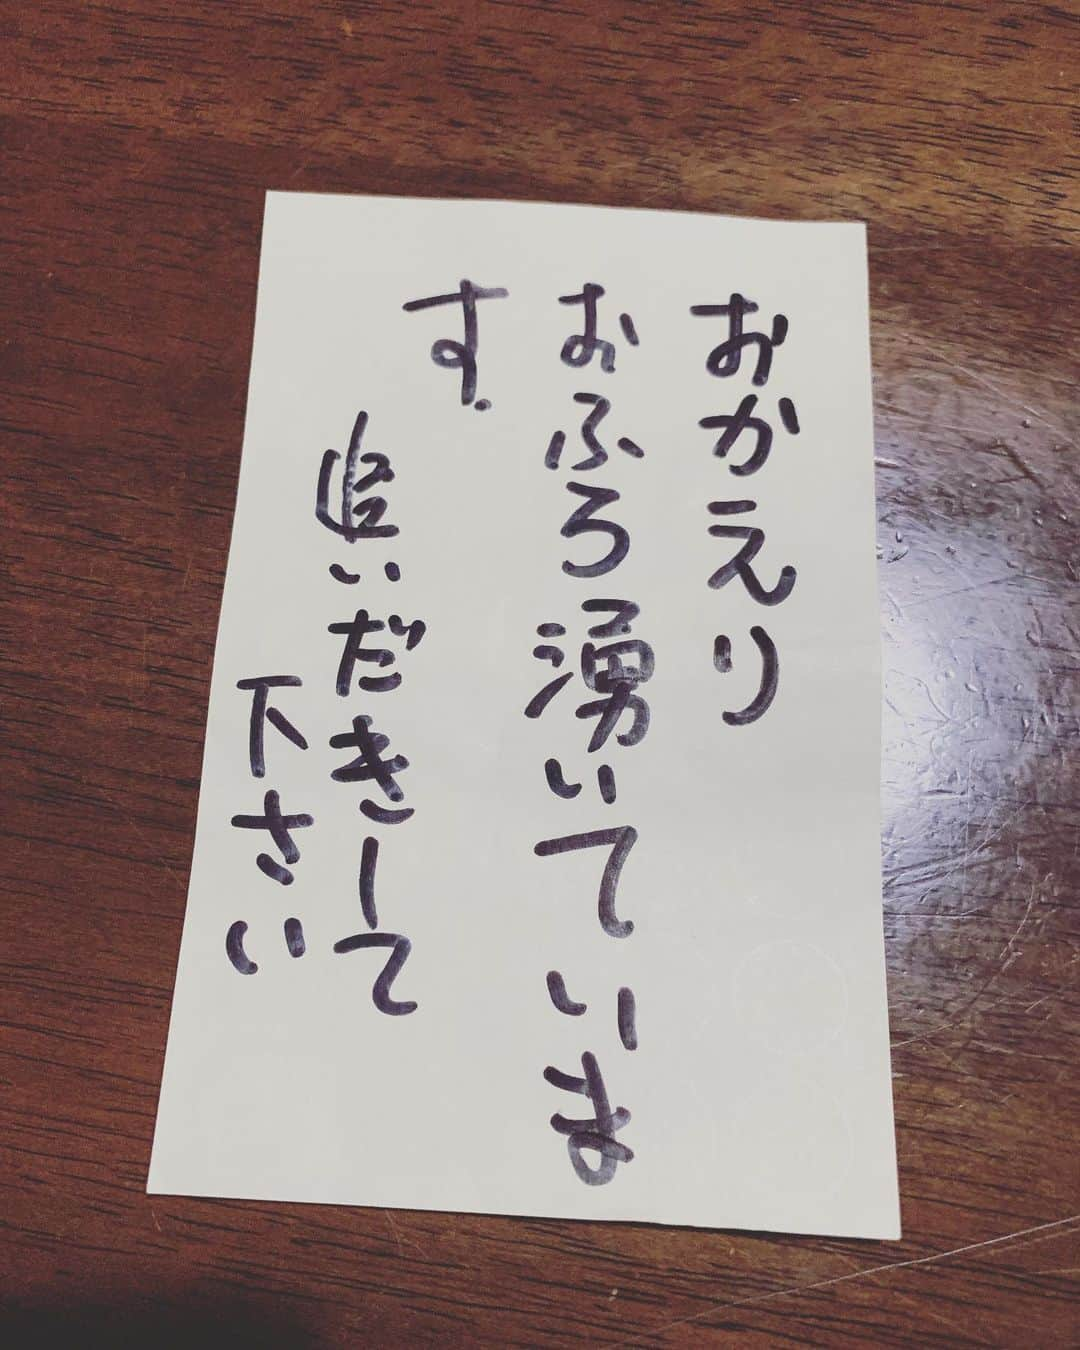 おかえり
おふろ湧いていま
す.
追いだきして
下さい